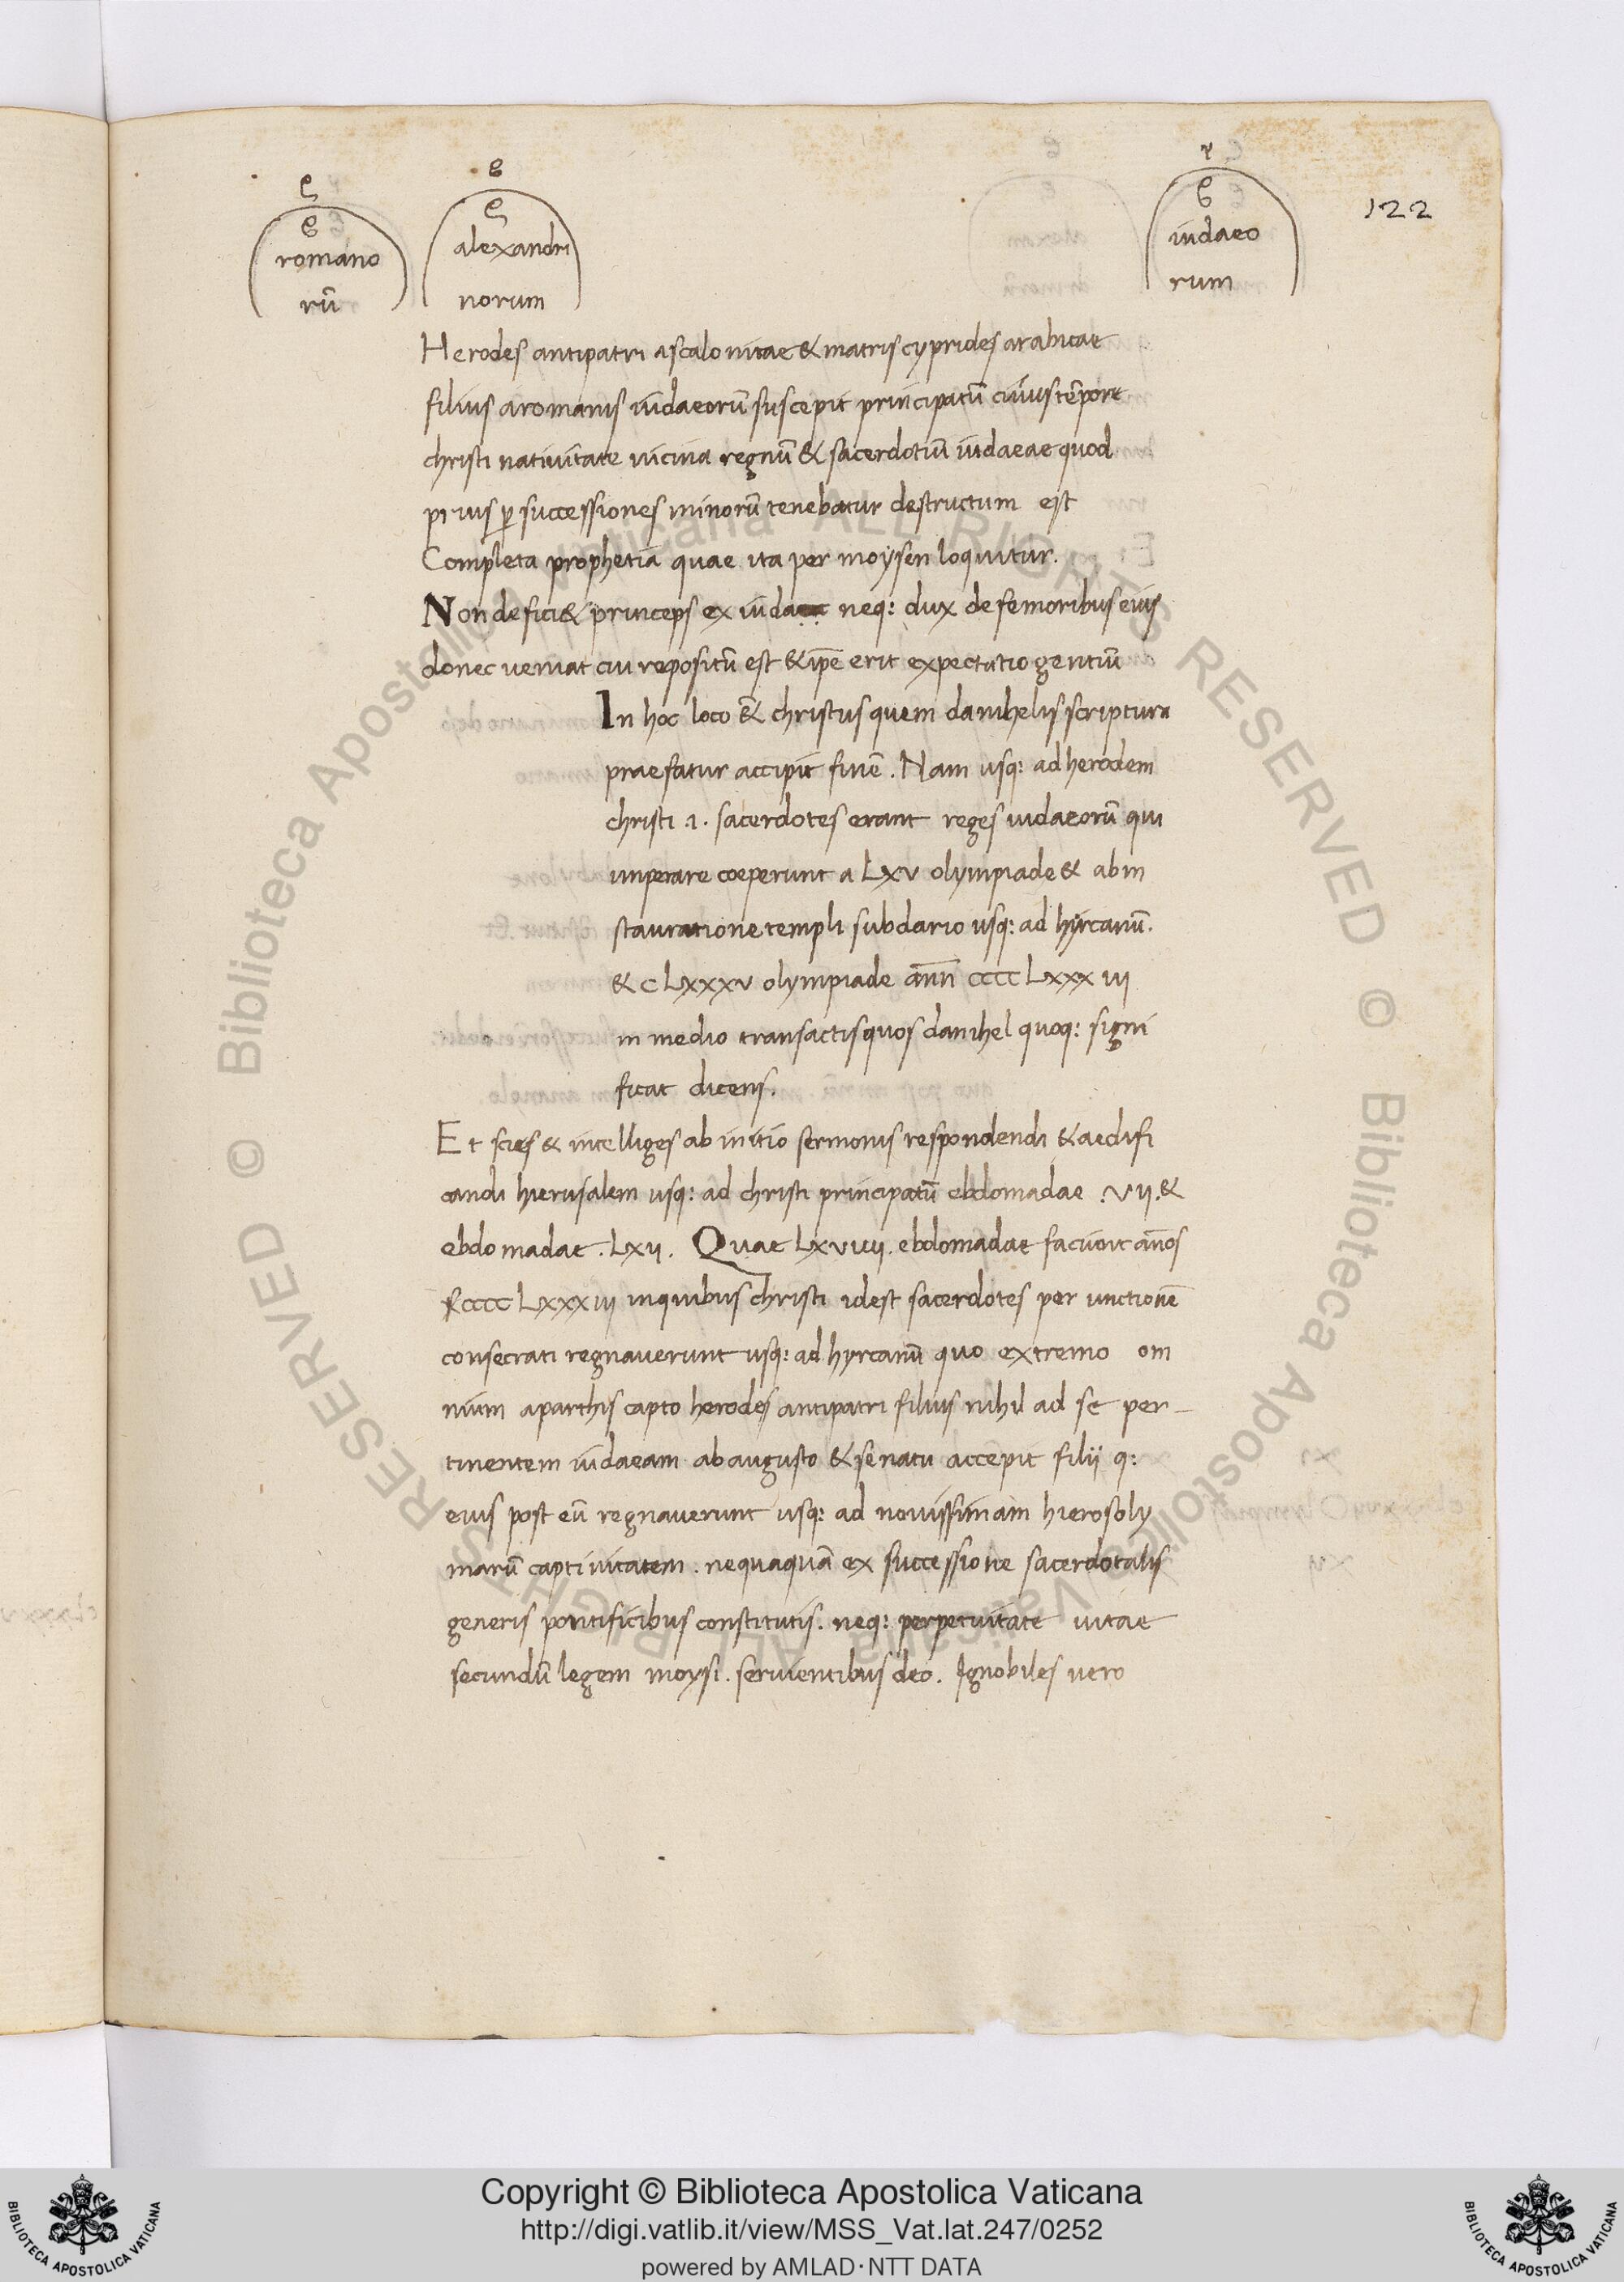 122
romano
rũ
alexandri
norum
iudaeo
rum
Herodes antipatri ascalonitae & matris cyprides arabicae
filius a romanis iudaeorũ suscepit principatũ cuius tẽpore
christi nativitate vicina regnũ & sacerdotiũ iudaeae quod
prius ꝑ successiones minorũ tenebatur destructum est
Completa prophetia quae ita per moysen loquitur.
Non defici& princeps ex iuda neq: dux de femoribus eius
donec veniat cui repositũ est & ipẽ erit expectatio gentiũ
In hoc loco & christus quem danihelis scriptura
praefatur accipit finẽ. Nam usq: ad herodem
christi .i. sacerdotes erant reges iudaeorũ qui
imperare coeperunt a Lxv olympiade & ab in
stauratione templi sub dario usq: ad hyrcanũ.
& c Lxxxv olympiade ann̄ cccc Lxxx iii
in medio transactis quos danihel quoq: signi
ficat dicens.
Et scies & intelliges ab initio sermonis respondendi & aedifi
candi hierusalem usq: ad christi principatũ ebdomadae .vii. &
ebdomadae .Lxii. Quae Lxviiii. ebdomadae faciunt an̄os
cccc Lxxx iii in quibus christi idest sacerdotes per unctionẽ
consecrati regnaverunt usq: ad hyrcanũ quo extremo om
nium a parthis capto herodes antipatri filius nihil ad se per-
tinentem iudaeam ab augusto & senatu accepit filii q:
eius post eũ regnaverunt usq: ad novissimam hierosoly
marũ captivitatem. nequaquã ex successione sacerdotalis
generis pontificibus constitutis. neq: perpetuitate vitae
secundũ legem moysi. servientibus deo. Ignobiles vero
© Biblioteca Apostolica Vaticana ALL RIGHTS RESERVED
© Biblioteca Apostolica Vaticana ALL RIGHTS RESERVED
Copyright © Biblioteca Apostolica Vaticana
http://digi.vatlib.it/view/MSS_Vat.lat.247/0252
powered by AMLAD·NTT DATA
BIBLIOTECA APOSTOLICA VATICANA
BIBLIOTECA APOSTOLICA VATICANA